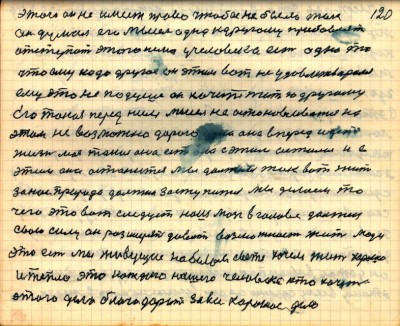 120
этого он не имеет право чтобы не было этак
он думал его мысли одна к другому прибавляет
отступает этого нема у человека ест одно то
что ему надо другая он этим вот не удовлетворяя
ему это не по душе он хочет жить по другому
его такая перед ним мысля не останавливается на
этим не возможно дорога она вперед идет
жизня моя такая она есть она с этим осталася и с
этим она останется мы должны так вот жить
за нас природа должна заступится мы делаем то
чего это вот следует наш мозг в голове должен
свою силу он разширяет давать возможность жить люди
это ест мы живущие на белом свете хочем жить хорошо
и тепло это каждого нашего человека кто хочет
этого дела благодарит за все хорошое дело